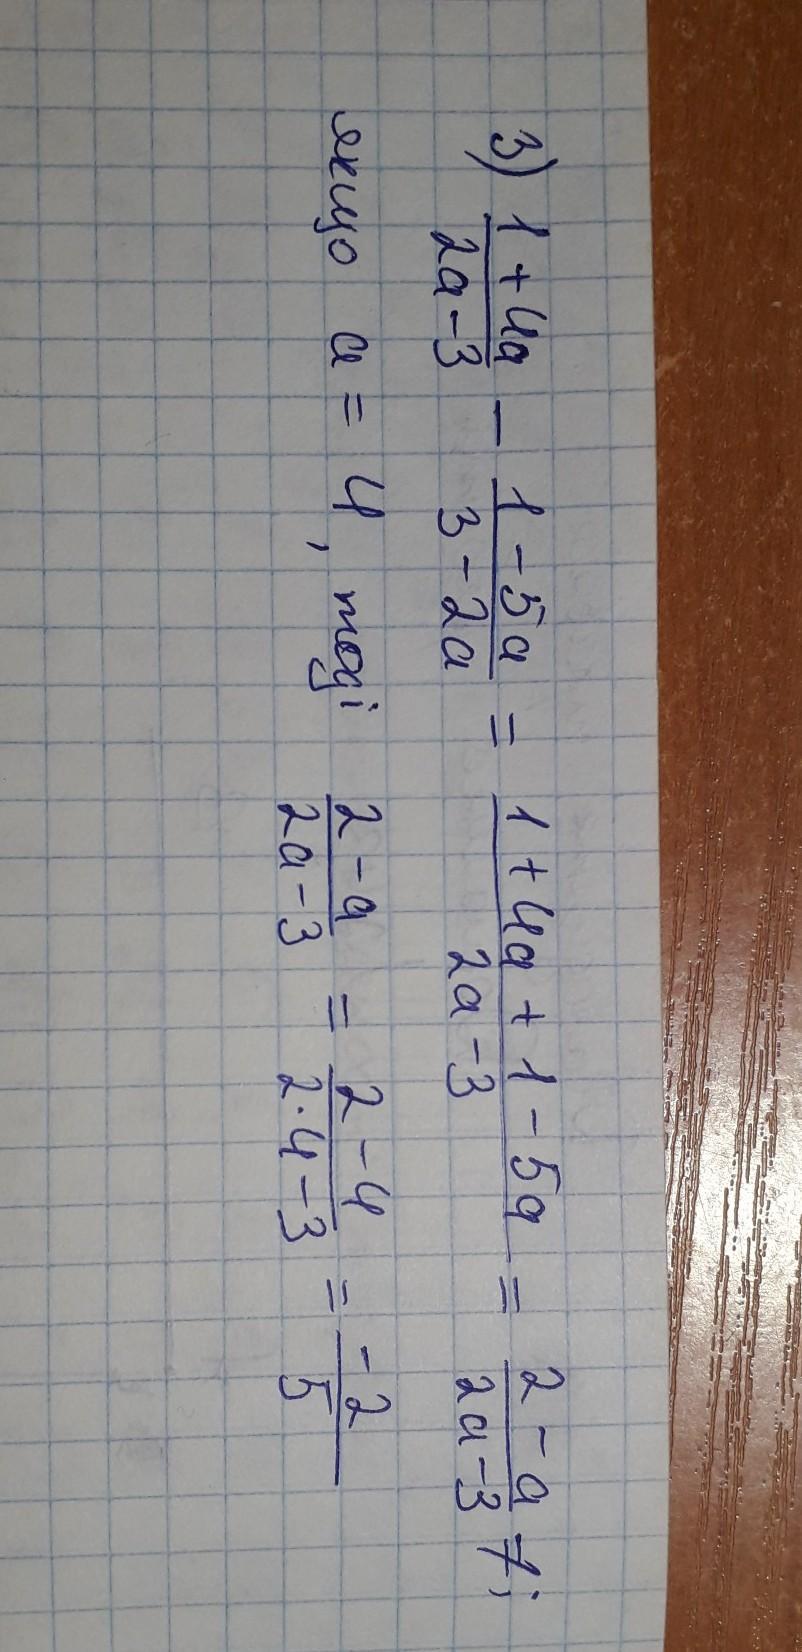 3) (1+4a)/(2a-3) - (1-5a)/(3-2a) = (1+4a+1-5a)/(2a-3) = (2-a)/(2a-3);
якщо a = 4, тоді (2-a)/(2a-3) = (2-4)/(2·4-3) = (-2)/5